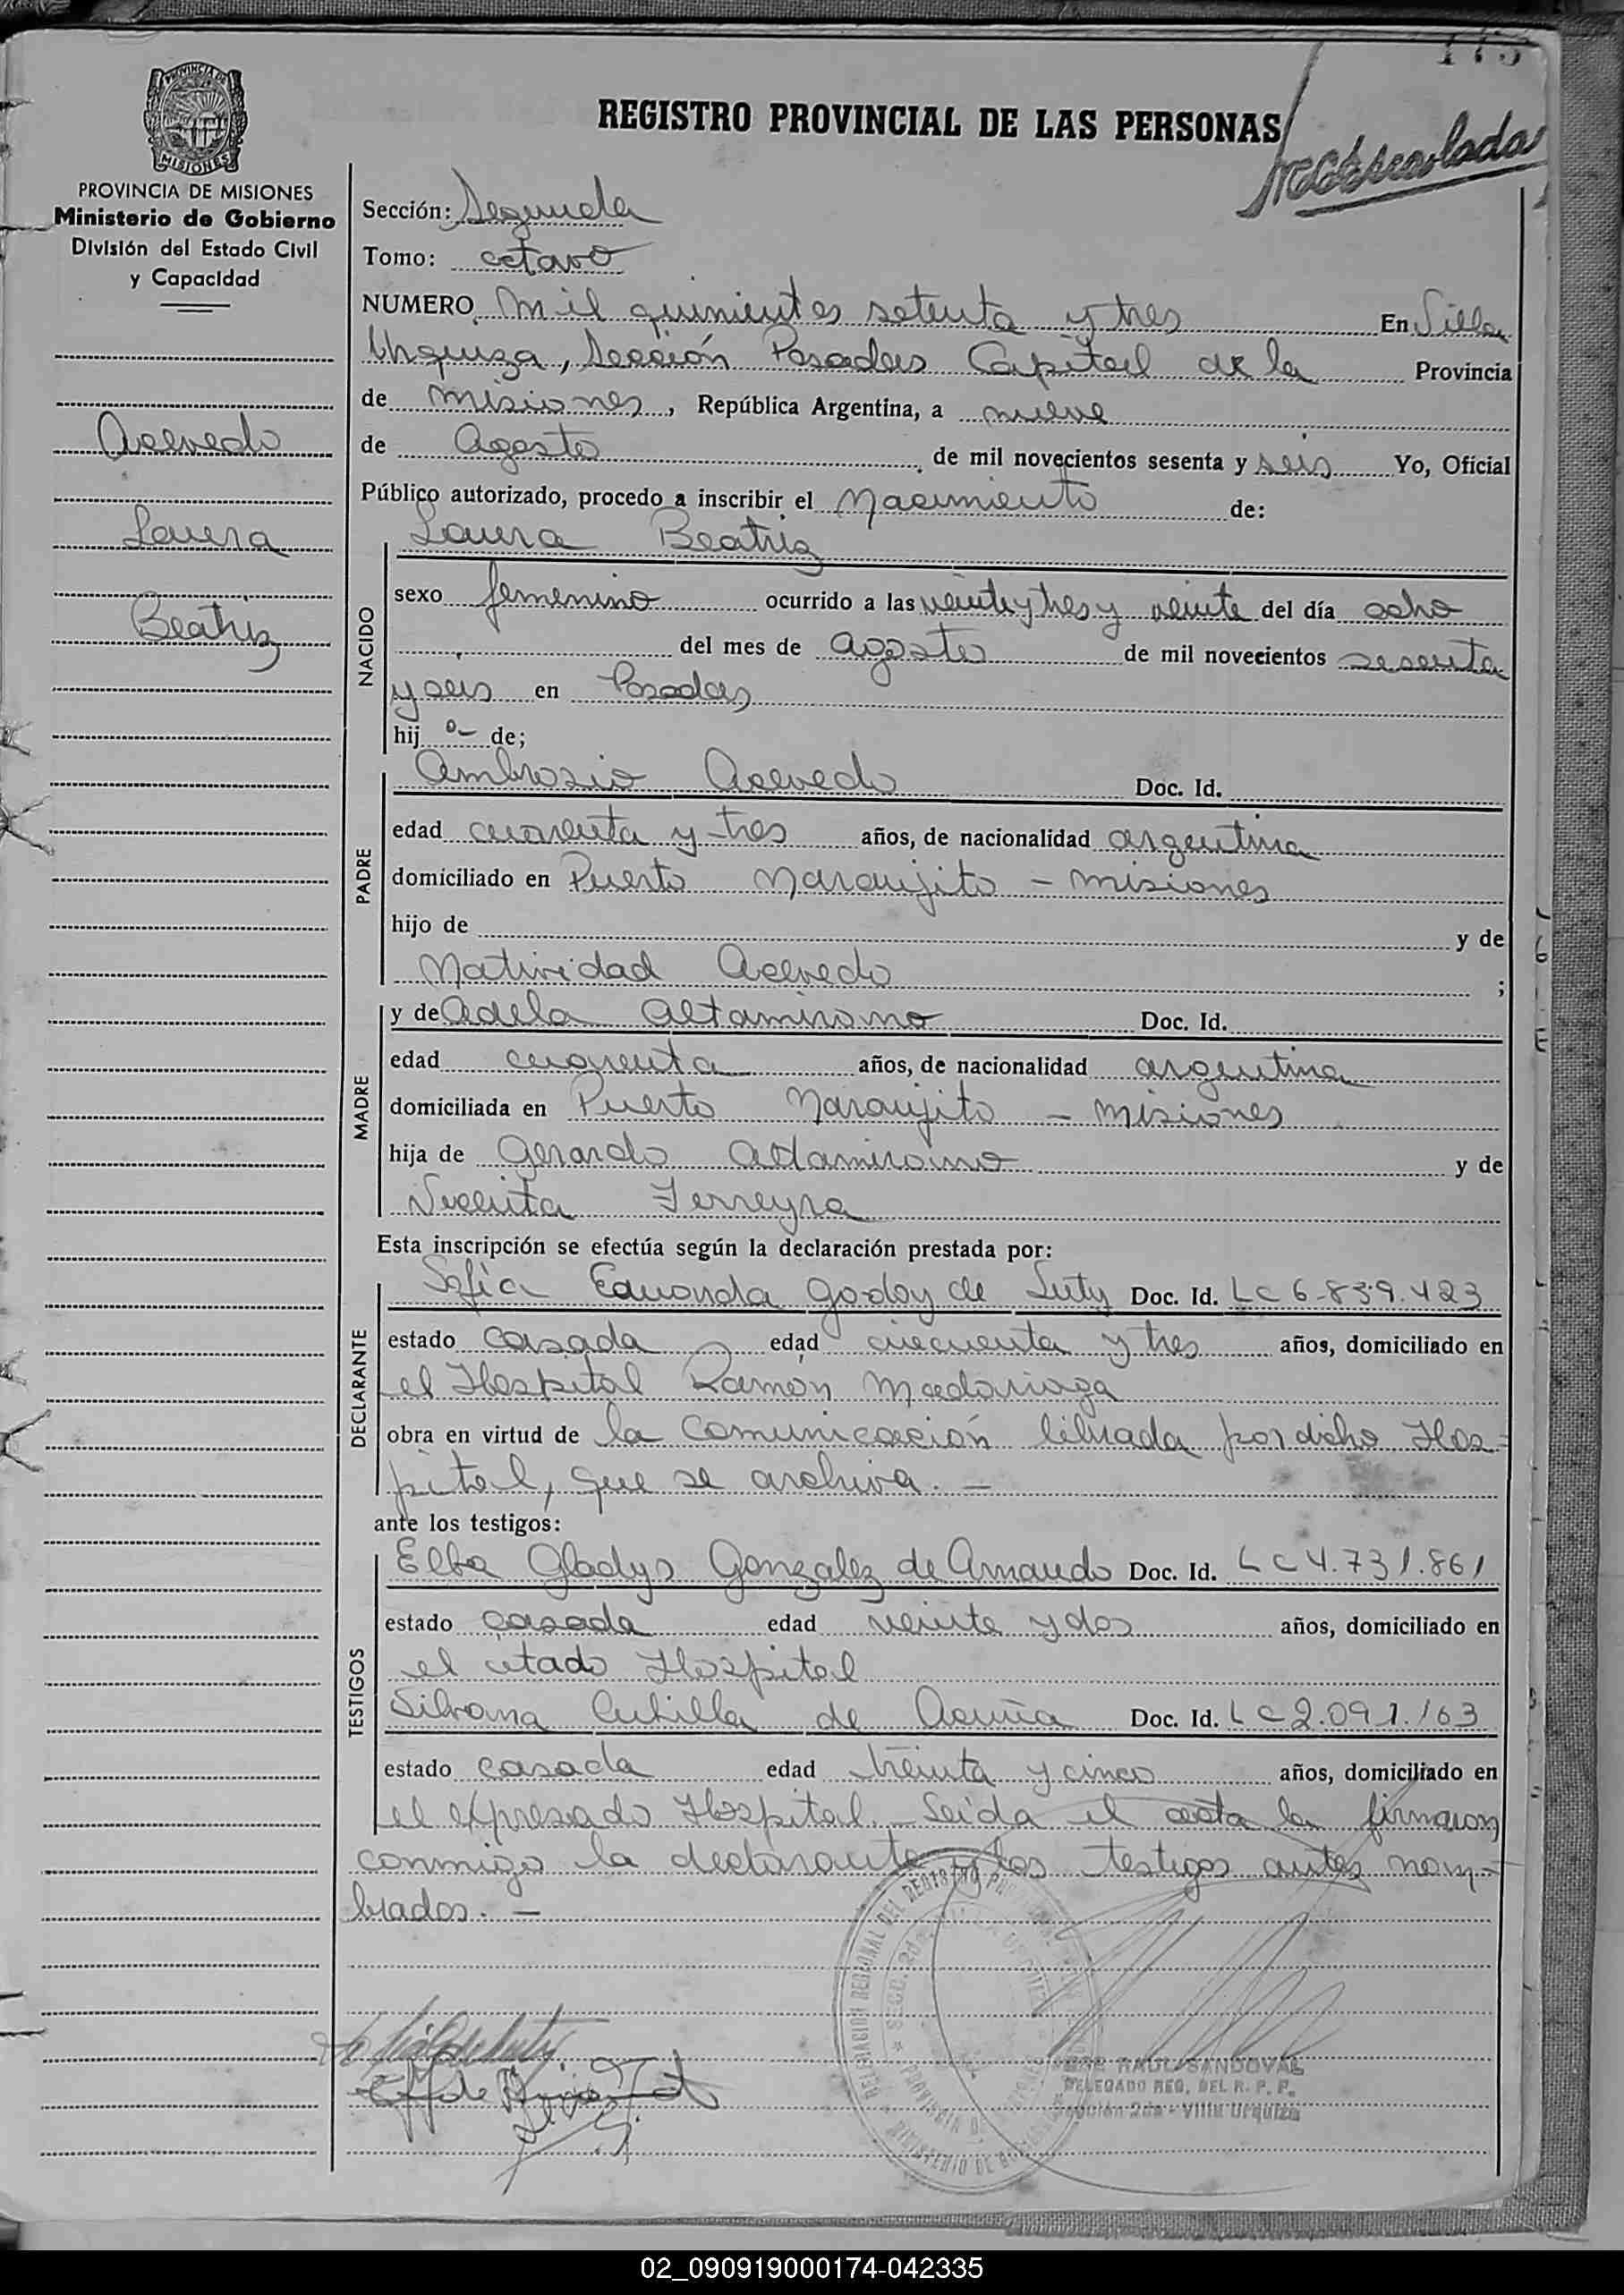 REGISTRO PROVINCIAL DE LAS PERSONAS
PROVINCIA DE MISIONES
Ministerio de Gobierno
División del Estado Civil
y Capacidad
Acevedo
Laura
Beatriz
Sección: Segunda
Tomo: octavo
NUMERO mil quinientos setenta y tres En Villa
Urquiza, Sección Posadas Capital de la Provincia
de Misiones, República Argentina, a nueve
de Agosto de mil novecientos sesenta y seis Yo, Oficial
Público autorizado, procedo a inscribir el Nacimiento de:
Laura Beatriz
NACIDO
sexo femenino ocurrido a las veinte y tres y veinte del día ocho
del mes de agosto de mil novecientos sesenta
y seis en Posadas
hij a de;
PADRE
Ambrosio Acevedo Doc. Id.
edad cuarenta y tres años, de nacionalidad argentina
domiciliado en Puerto Naranjito - Misiones
hijo de y de
Natividad Acevedo ;
MADRE
y de Adela Altamirano Doc. Id.
edad cuarenta años, de nacionalidad argentina
domiciliada en Puerto Naranjito - Misiones
hija de Gerardo Altamirano y de
Ferreyra
Esta inscripción se efectúa según la declaración prestada por:
DECLARANTE
Sofía Edmonda Godoy de Luty Doc. Id. LC 6.839.423
estado casada edad cincuenta y tres años, domiciliado en
el Hospital Ramón Madariaga
obra en virtud de la comunicación librada por dicho Hos-
pital, que se archiva. -
ante los testigos:
TESTIGOS
Elba Gladys Gonzalez de Arnaudo Doc. Id. LC 4.731.861
estado casada edad veinte y dos años, domiciliado en
el citado Hospital
Silvana Cubilla de Acuña Doc. Id. LC 2.091.163
estado casada edad treinta y cinco años, domiciliado en
el expresado Hospital. - Leída el acta la firmaron
conmigo la declarante y los testigos antes nom-
brados. -
RAUL SANDOVAL
DELEGADO REG. DEL R. P. P.
Sección 2da - Villa Urquiza
02_090919000174-042335